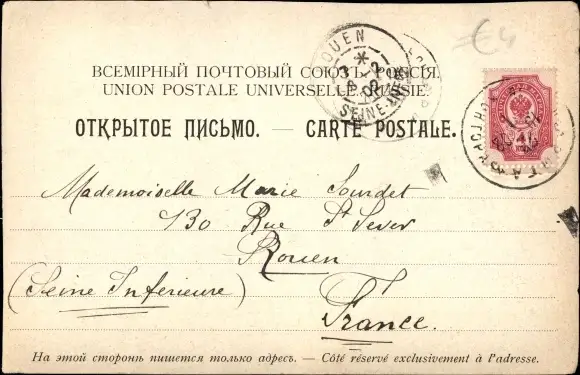 €4
ROUEN
SEINE-INFRE
ВСЕМІРНЫЙ ПОЧТОВЫЙ СОЮЗЪ. РОССІЯ.
UNION POSTALE UNIVERSELLE. RUSSIE.
ОТКРЫТОЕ ПИСЬМО. — CARTE POSTALE.
Mademoiselle Marie Sourdet
130 Rue St Sever
Rouen
(Seine Inférieure)
France.
На этой сторонѣ пишется только адресъ. — Côté réservé exclusivement à l'adresse.